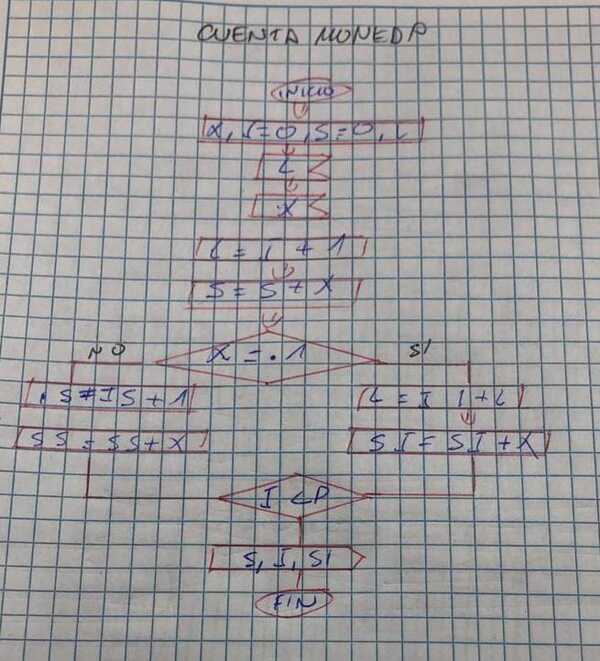 CUENTA MONEDA
INICIO
X, I=0, S=0, L
L
X
L = I + 1
S = S + X
X = .1
NO
SI
.S≠IS+1
L = I I+L
SS = SS+X
SI = SI+X
I <P
S, I, SI
FIN